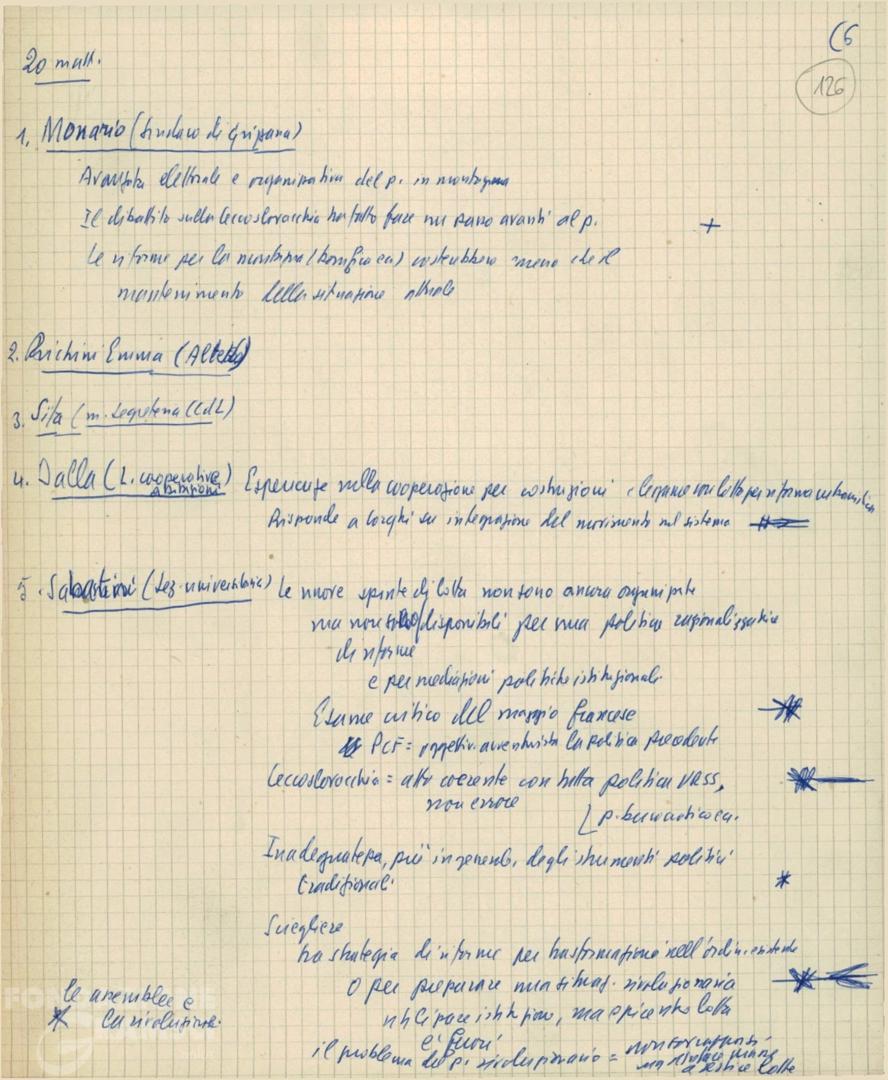 C6
126
20 matt.
1. Monario (Sindaco di Grizzana)
Avanzata elettorale e organizzativa del p. in montagna
Il dibattito sulla Cecoslovacchia ha fatto fare un passo avanti al p. +
Le riforme per la montagna (bonifica ca) costerebbero meno che il
mantenimento della situazione attuale
2. Emma
3. Sita (m. segreteria CCdL)
4. Dalla (L. cooperative abitazioni) Esperienze nella cooperazione per costruzioni e legame con lotta per riforma urbanistica
Risponde a Longhi su integrazione del movimento nel sistema
5. Sabatini (Sez. universitaria) Le nuove spinte di lotta non sono ancora organizzate
ma non solo disponibili per una politica razionalizzatrice
di riforme
e per mediazioni politiche istituzionali.
Esame critico del maggio francese
PCF = oggettiv. avventurista la politica precedente
Cecoslovacchia = atto coerente con tutta politica URSS,
non errore
p. burocratico ca.
Inadeguatezza, più in generale, degli strumenti politici
tradizionali
Scegliere
tra strategia di riforme per trasformazione nell'ordin. esistente
o per preparare una situaz. rivoluzionaria
istituzioni, ma epicentro lotta
è fuori
le assemblee e
la rivoluzione.
il problema del p. rivoluzionario = non
lotte